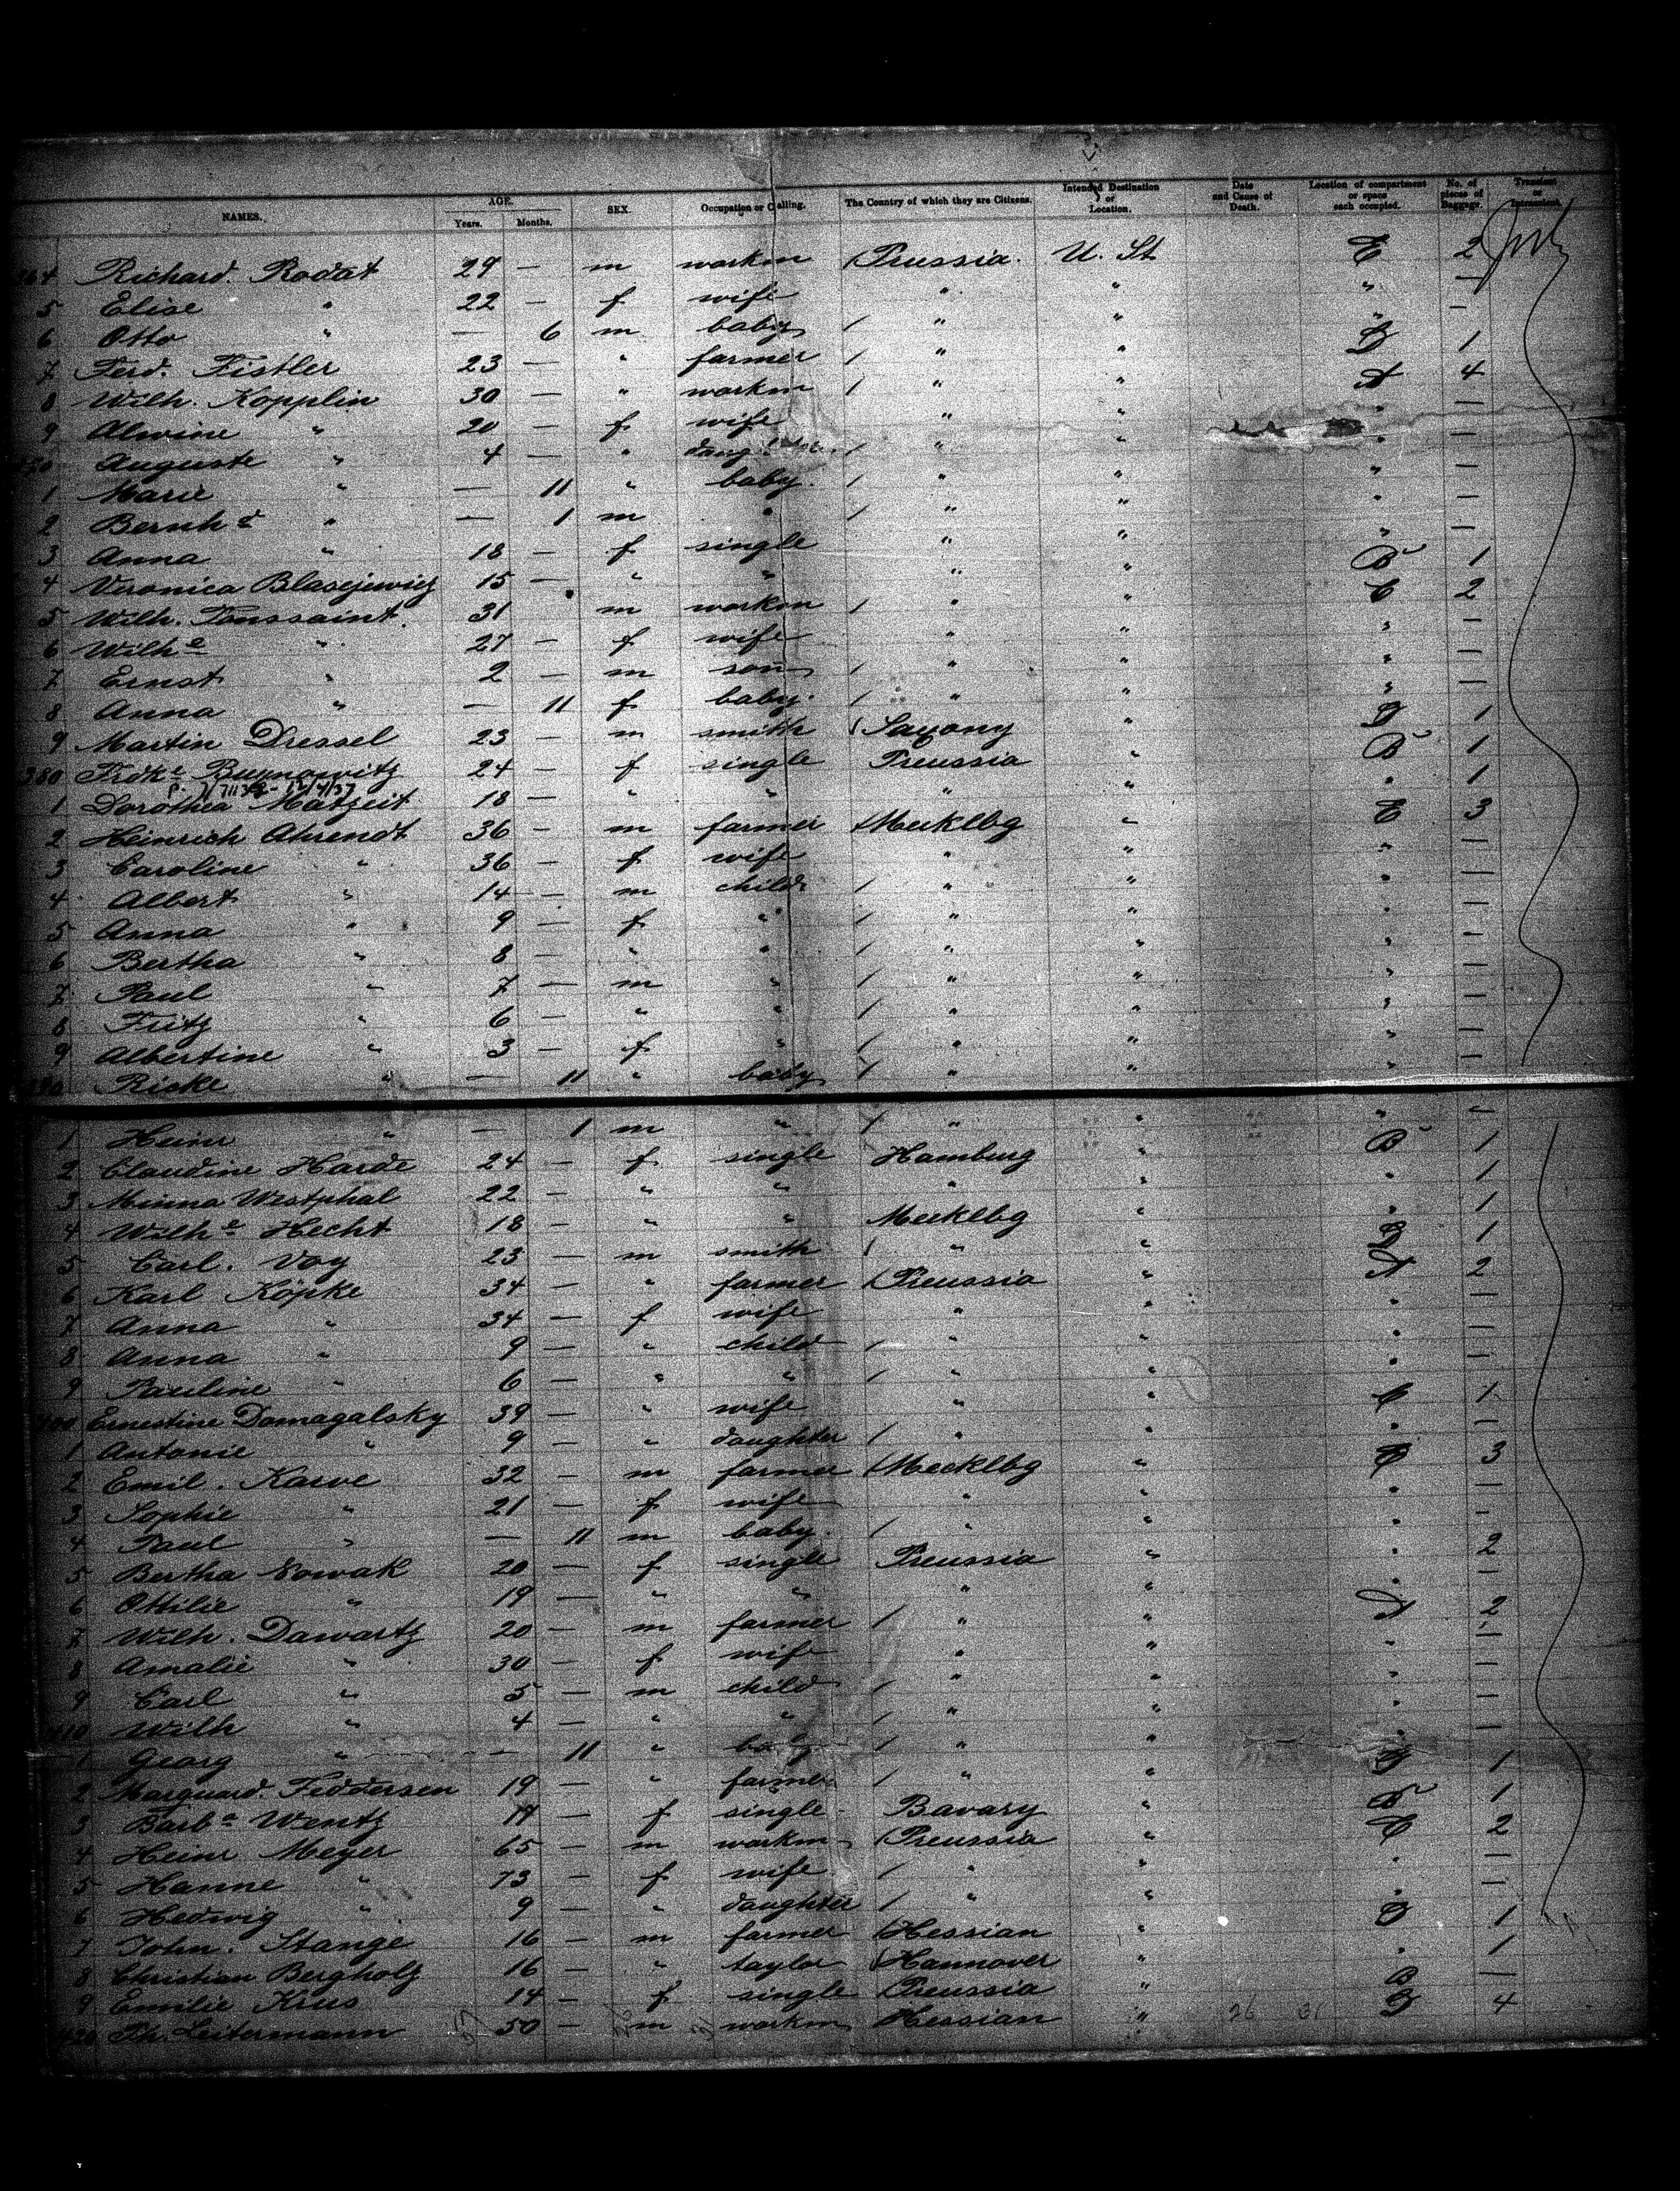 NAMES. AGE. Years. Months. SEX. Occupation or Calling. The Country of which they are Citizens. Intended Destination or Location. Date and Cause of Death. Location of compartment or space each occupied. No. of pieces of Baggage. Transient or Intransient.
364 Richard. Rodat 29 — m workm Preussia. U. St E 2
5 Elise " 22 — f wife " " " —
6 Otto " — 6 m baby / " " " —
7 Ferd. Fistler 23 — " farmer / " " D 1
8 Wilh. Kopplin 30 — " workm / " " A 4
9 Alwine " 20 — f wife " " " —
Auguste " 4 — " / " " " —
1 Marie " — 11 " baby. / " " " —
2 Bernhd " — 1 m " / " " " —
3 Anna " 18 — f single " " " —
4 Veronica Blasejewicz 15 — " " " " B 1
5 Wilh. Toussaint. 31 m workm / " " C 2
6 Wilhe " 27 — f wife " " " —
7 Ernst " 2 — m son / " " " —
8 Anna " — 11 f baby. / " " " —
9 Martin Dressel 23 — m smith / Saxony " D 1
380 Frdke 24 — f single Preussia " B 1
1 Dorothea Matzeit 18 — " " " " " 1
2 Heinrich Ahrendt 36 — m farmer / Mecklbg " E 3
3 Caroline " 36 — f wife " " " —
4 Albert " 14 — m child / " " " —
5 Anna " 9 — f " / " " " —
6 Bertha " 8 — " " / " " " —
7 Paul " 7 — m " / " " " —
8 Fritz " 6 — " " / " " " —
9 Albertine " 3 — f " / " " " —
390 Rieke " — 11 " baby / " " " —
1 Heinr " — 1 m " / " " " —
2 Claudine Harde 24 — f single Hamburg " B 1
3 Minna Westphal 22 — " " " " " 1
4 Wilhe Hecht 18 — " " Mecklbg " " 1
5 Carl. Voy 23 — m smith / " " D 1
6 Karl Köpke 34 — " farmer / Preussia " A 2
7 Anna " 34 — f wife " " " —
8 Anna " 9 — " child / " " " —
9 Pauline " 6 — " " / " " " —
400 Ernestine Domagalsky 39 — " wife " " C 1
1 Antonie " 9 — " daughter / " " " —
2 Emil. Karve 32 — m farmer / Mecklbg " C 3
3 Sophie " 21 — f wife " " " —
4 Paul " — 11 m baby. / " " " —
5 Bertha Nowak 20 — f single Preussia " " 2
6 Ottilie " 19 — " " " " " —
7 Wilh. Dawartz 20 — m farmer / " " A 2
8 Amalie " 30 — f wife " " " —
9 Carl " 5 — m child / " " " —
410 Wilh " 4 — " " / " " " —
1 Georg " — 11 " baby / " " " —
2 Marquard. Feddersen 19 — " farmer / " " D 1
3 Barba Wentz — f single Bavary " B 1
4 Heinr Meyer 65 — m workm / Preussia " C 2
5 Hanne " 73 — f wife / " " " —
6 Hedwig " 9 — " daughter / " " " —
7 John. Stange 16 — m farmer / Hessian " D 1
8 Christian Bergholz 16 — " taylor / Hannover " " 1
9 Emilie Krus 14 — f single Preussia " B —
420 Ph. Leitermann 50 — m workm Hessian " 26 31 D 4